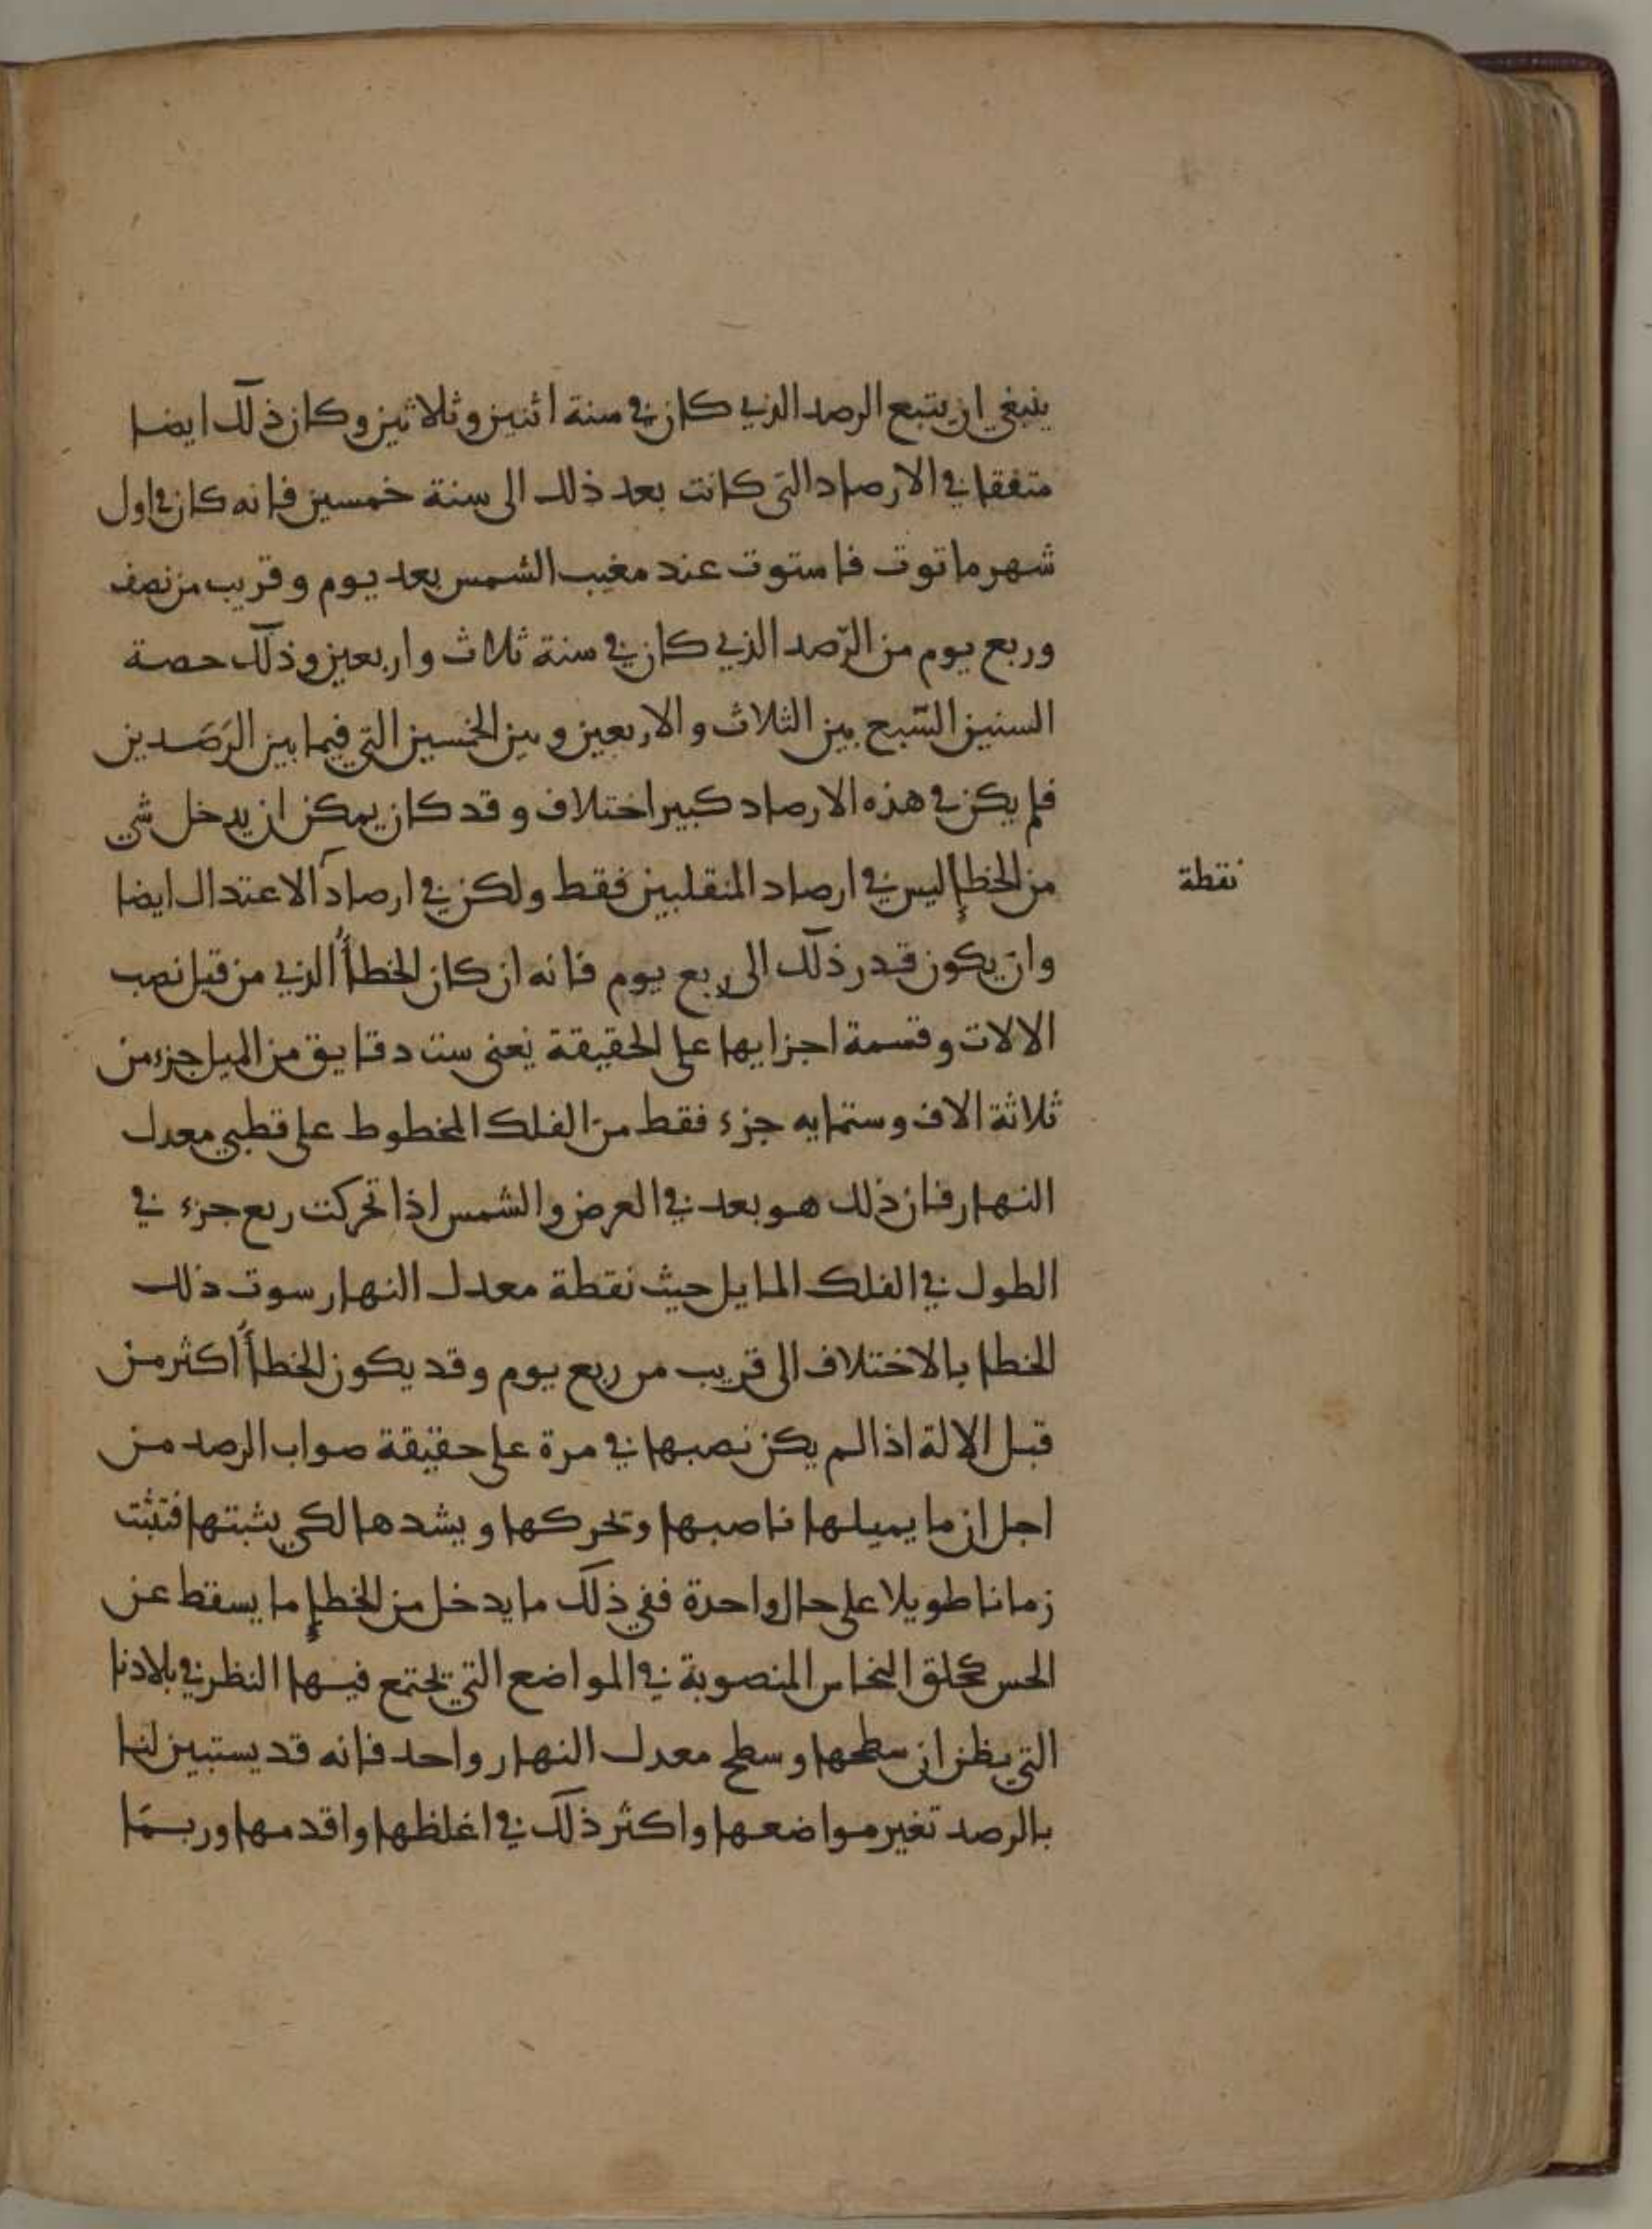 ينبغي ان يتبع الرصد الذي كان في سنة اثنين وثلاثين وكان ذلك ايضا
متفقا في الارصاد التي كانت بعد ذلك الى سنة خمسين فانه كان في اول
شهر ماتوت فاستوت عند مغيب الشمس بعد يوم وقريب من نصف
وربع يوم من الرّصد الذي كان في سنة ثلاث واربعين وذلك حصة
السنين السّبع بين الثلاث والاربعين وبين الخمسين التي فيما بين الرَصَدين
فلم يكن في هذه الارصاد كبير اختلاف وقد كان يمكن ان يدخل شي
من الخطإٍ ليس في ارصاد المنقلبين فقط ولكن في ارصاد الاعتدال ايضا
نقطة
وان يكون قدر ذلك الى ربع يوم فانه ان كان الخطأُ الذي من قبل نصب
الالات وقسمة اجزايها على الحقيقة يعنى ست دقايق من الميل جزء من
ثلاثة الاف وستمايه جزء فقط من الفلك المخطوط على قطبي معدل
النهار فان ذلك هو بعد في العرض والشمس اذا تحركت ربع جزء في
الطول في الفلك المايل حيث نقطة معدل النهار سوت ذلك
الخطا بالاختلاف الى قريب من ربع يوم وقد يكون الخطأُ اكثر من
قبل الالة اذا لم يكن نصبها في مرة على حقيقة صواب الرصد من
اجل ان ما يميلها ناصبها وتحركها ويشدها لكي يثبتها فتثبت
زمانا طويلا على حال واحدة ففي ذلك ما يدخل من الخطإٍ ما يسقط عن
الحس كحلق النحاس المنصوبة في المواضع التي تجتمع فيها النظر في بلادنا
التي يظن ان سطحها وسطح معدل النهار واحد فانه قد يستبين لنا
بالرصد تغير مواضعها واكثر ذلك في اغلظها واقدمها وربمّا